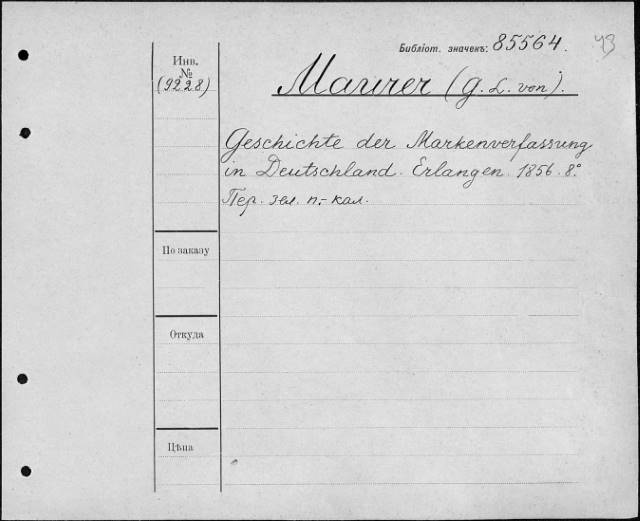 Библіот. значекъ: 85564. 43
Инв.
№
(9228)
Maurer (G. L. von).
Geschichte der Markenverfassung
in Deutschland. Erlangen. 1856. 8º
Пер. зел. п.-кал.
По заказу
Откуда
Цѣна